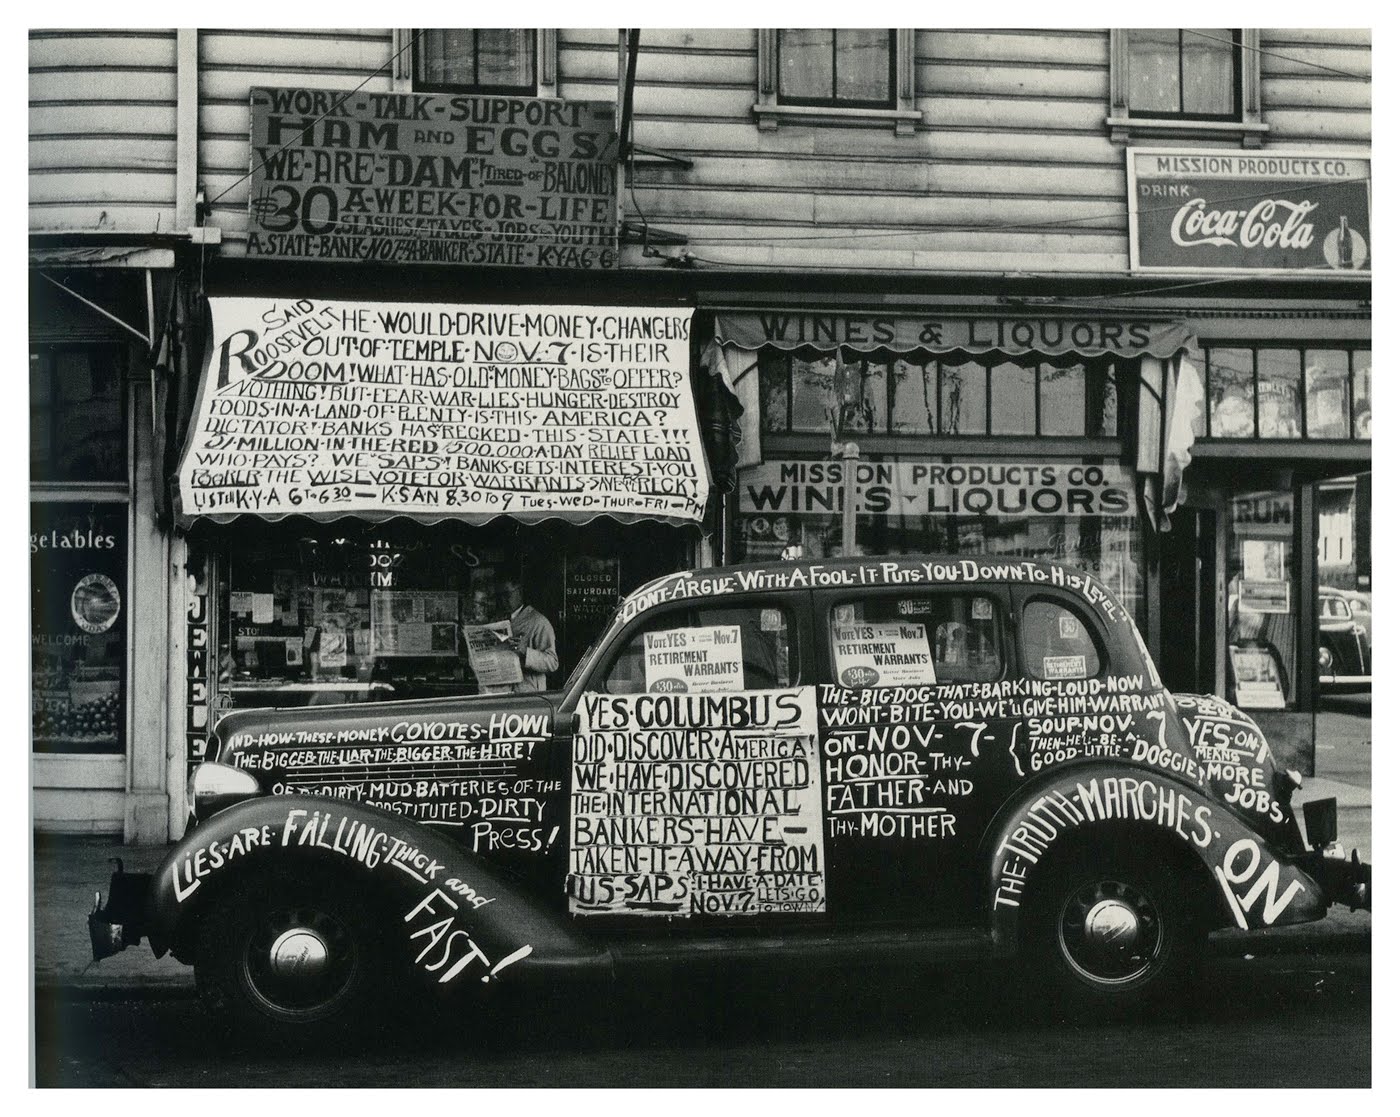 -WORK-TALK-SUPPORT-
HAM AND EGGS!
WE-ARE-"DAM"-! TIRED-OF BALONEY
$30 A-WEEK-FOR-LIFE
SLASHES-TAXES-JOBS-YOUTH
A-STATE-BANK-NOT-A-BANKER-STATE-K-Y-A 6
MISSION PRODUCTS CO.
DRINK
Coca-Cola
SAID
ROOSEVELT HE·WOULD·DRIVE·MONEY·CHANGERS
OUT·OF·TEMPLE·NOV.·7·IS·THEIR
DOOM! WHAT·HAS·OLD·"MONEY·BAGS"·TO·OFFER?
NOTHING! BUT·FEAR·WAR·LIES·HUNGER·DESTROY
FOODS·IN·A·LAND·OF·PLENTY·IS·THIS·AMERICA?
DICTATOR! BANKS HAS RECKED·THIS·STATE·!!!
MILLION·IN·THE·RED 500,000·A·DAY RELIEF LOAD
WHO·PAYS? WE "SAPS"! BANKS·GETS·INTEREST·YOU
POORER THE WISE VOTE·FOR·WARRANTS·SAVE THE RECK!
LISTEN K·Y·A 6 TO 6 30 — K·SAN 8.30 TO 9 TUES-WED-THUR-FRI-PM
WINES & LIQUORS
MISSION PRODUCTS CO.
WINES LIQUORS
RUM
getables
WELCOME
CLOSED
SATURDAYS
DONT-ARGUE-WITH-A-FOOL-IT PUTS-YOU-DOWN-TO-HIS-LEVEL
VOTE YES Nov. 7
'RETIREMENT
WARRANTS'
$30
VOTE YES Nov. 7
'RETIREMENT
WARRANTS'
$30
AND-HOW-THESE-MONEY-COYOTES-HOWL
THE-BIGGER-THE-LIAR-THE-BIGGER-THE-HIRE!
DIRTY-MUD-BATTERIES-OF-THE
PROSTITUTED-DIRTY
PRESS!
LIES-ARE-FALLING-THICK and
FAST!
YES·COLUMBUS
DID·DISCOVER·AMERICA!
WE·HAVE·DISCOVERED
THE·INTERNATIONAL
BANKERS-HAVE—
TAKEN-IT-AWAY-FROM
US-SAPS I-HAVE-A-DATE
NOV.7 LETS-GO
TO-TOWN!
THE-BIG-DOG-THATS-BARKING-LOUD-NOW
WONT-BITE-YOU-WE'LL GIVE-HIM-WARRANT
SOUP-NOV-7
THEN-HE'LL-BE-A-
GOOD-LITTLE-DOGGIE!
ON-NOV-7-
HONOR-THY-
FATHER-AND
THY-MOTHER
YES-ON-1
MEANS
MORE
JOBS.
THE-TRUTH-MARCHES-ON